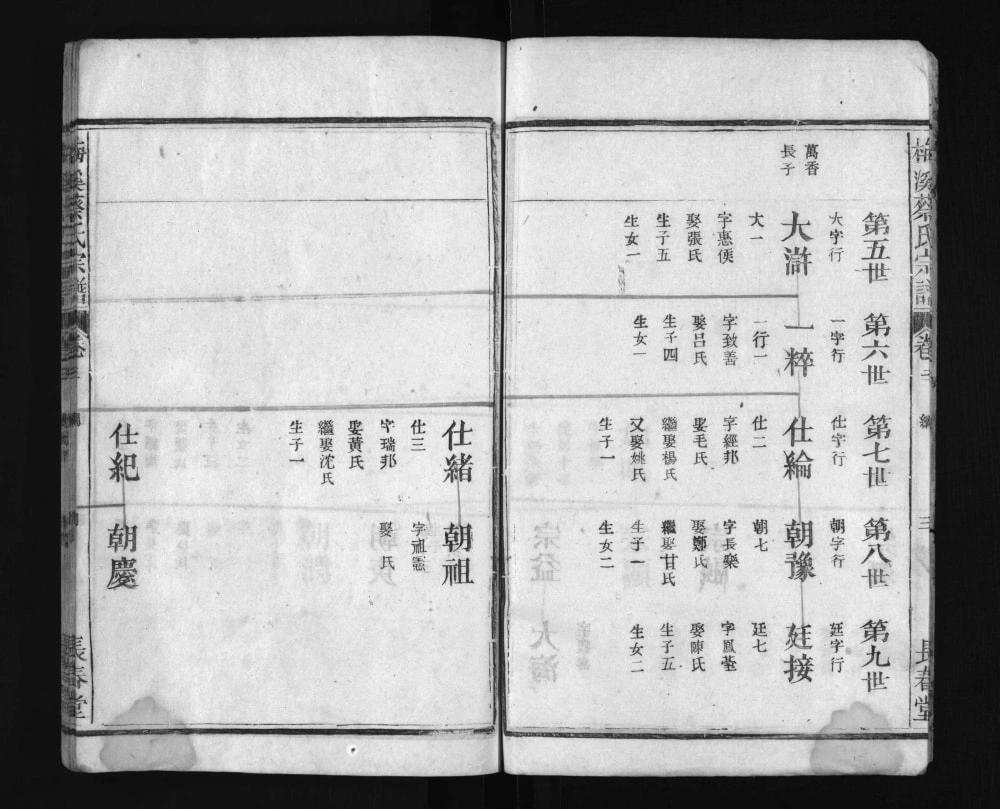 梅溪蔡氏宗譜
卷三
三
長春堂
第五世
第六世
第七世
第八世
第九世
大字行
一字行
仕字行
朝字行
廷字行
萬香
長子
大滸
一粹
仕綸
朝豫
廷接
大一
字惠
娶張氏
生子五
生女一
一行一
字致善
娶呂氏
生子四
生女一
仕二
字經邦
娶毛氏
繼娶楊氏
又娶姚氏
生子一
朝七
字長樂
娶鄭氏
繼娶甘氏
生子一
生女二
廷七
字鳳
娶陳氏
生子五
生女二
仕緒
朝祖
仕三
字瑞邦
娶黃氏
繼娶沈氏
生子一
字祖憲
娶 氏
仕紀
朝慶
梅溪蔡氏宗譜
卷三
長春堂